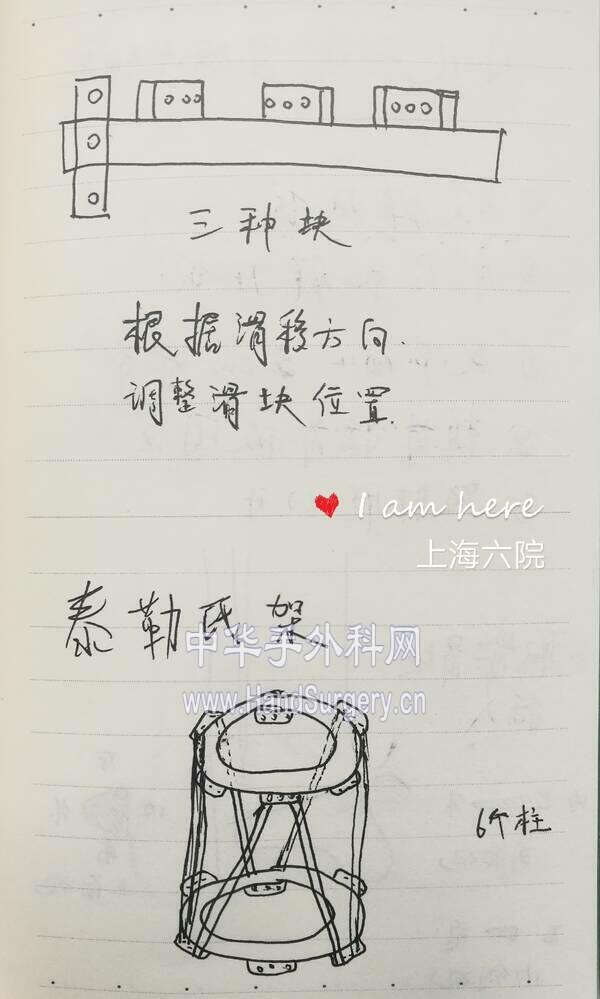 三种块
根据滑移方向.
调整滑块位置.
I am here
上海六院
泰勒氏架
中华手外科网
www.HandSurgery.cn
6个柱